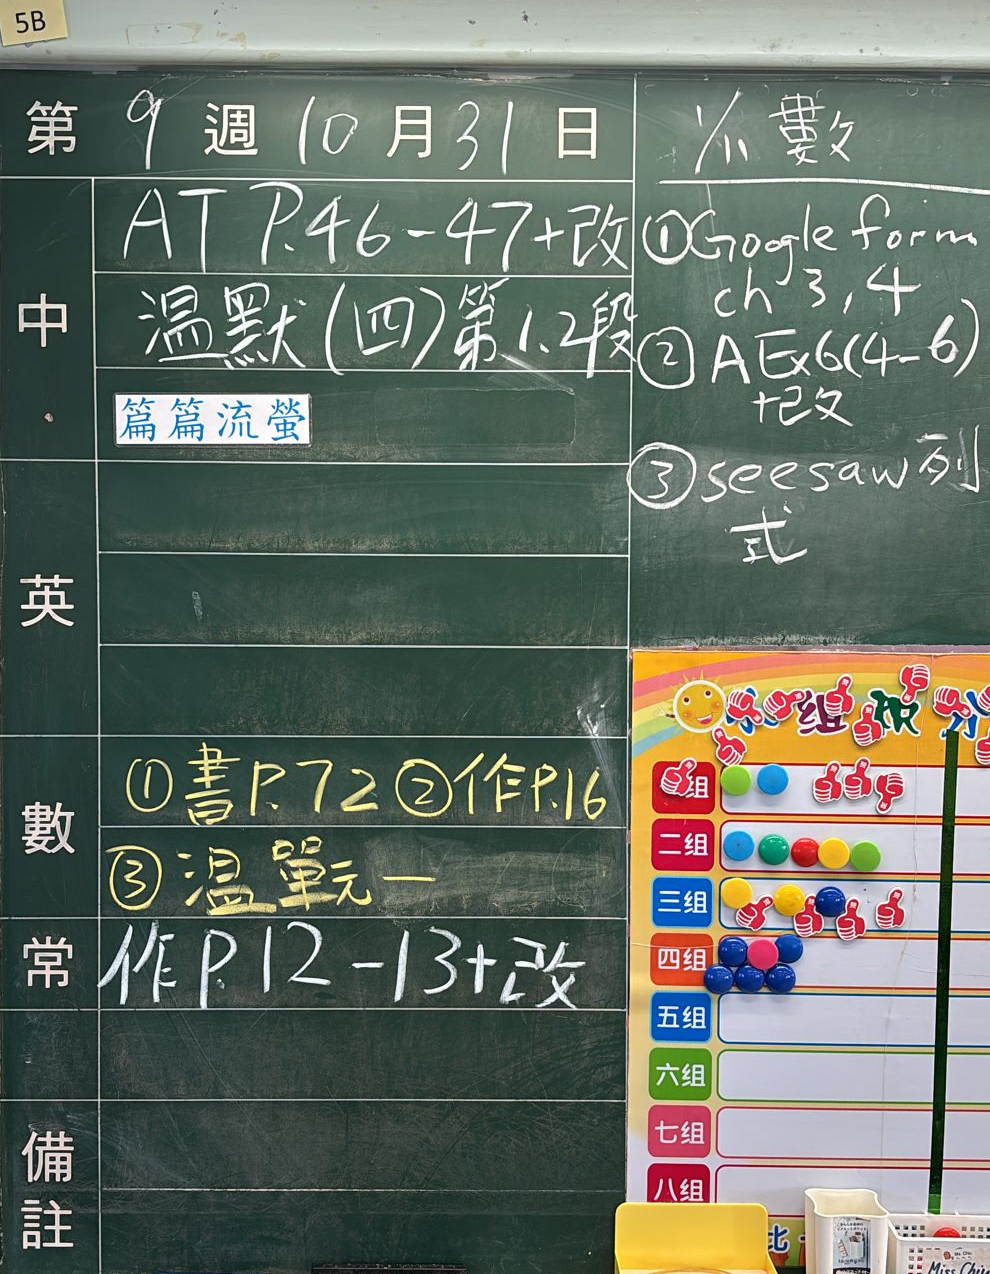 5B
第 9 週 10 月 31 日
中
AT P.46-47+改
温默(四)第1.2段
篇篇流螢
英
數
①書P.72 ②作P.16
③温單元一
常
作P.12-13+改
備註
1/11 數
①Google form
ch 3,4
②A Ex6(4-6)
+改
③seesaw列
式
分组积分
组
二组
三组
四组
五组
六组
七组
八组
比
Miss Chiu